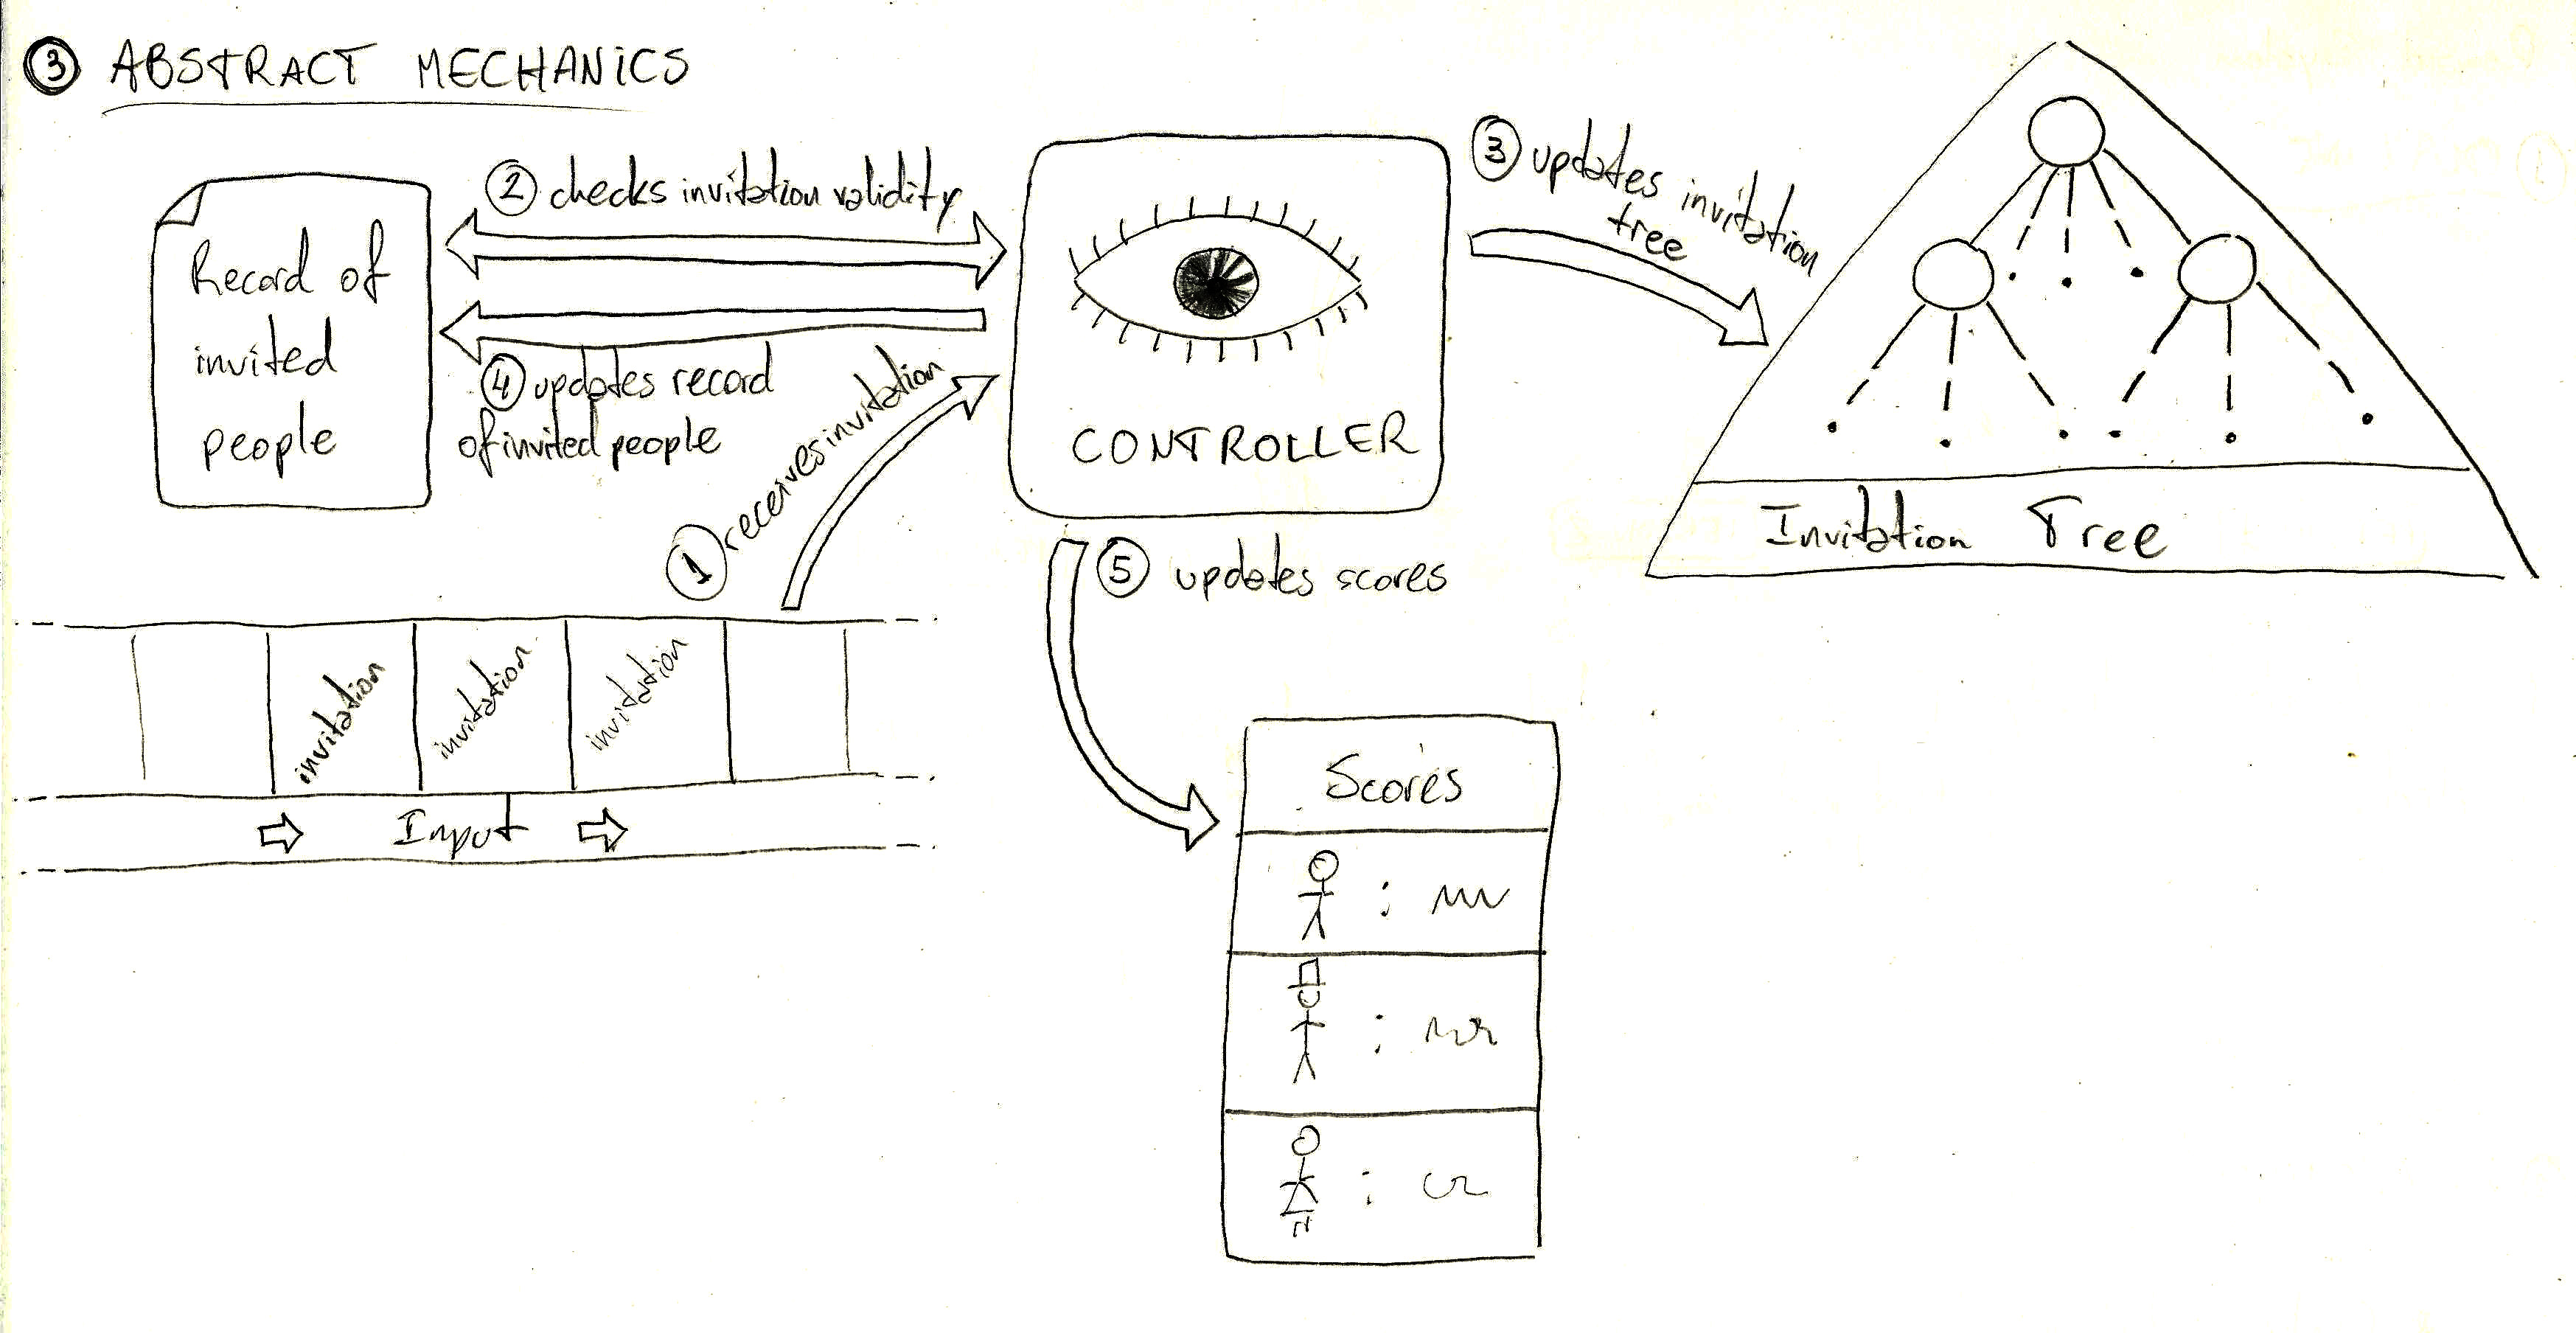 3 ABSTRACT MECHANICS
Record of
invited
people
2 checks invitation validity
4 updates record
of invited people
1 receives invitation
CONTROLLER
3 updates invitation
tree
Invitation Tree
5 updates scores
invitation
invitation
invitation
Input
Scores